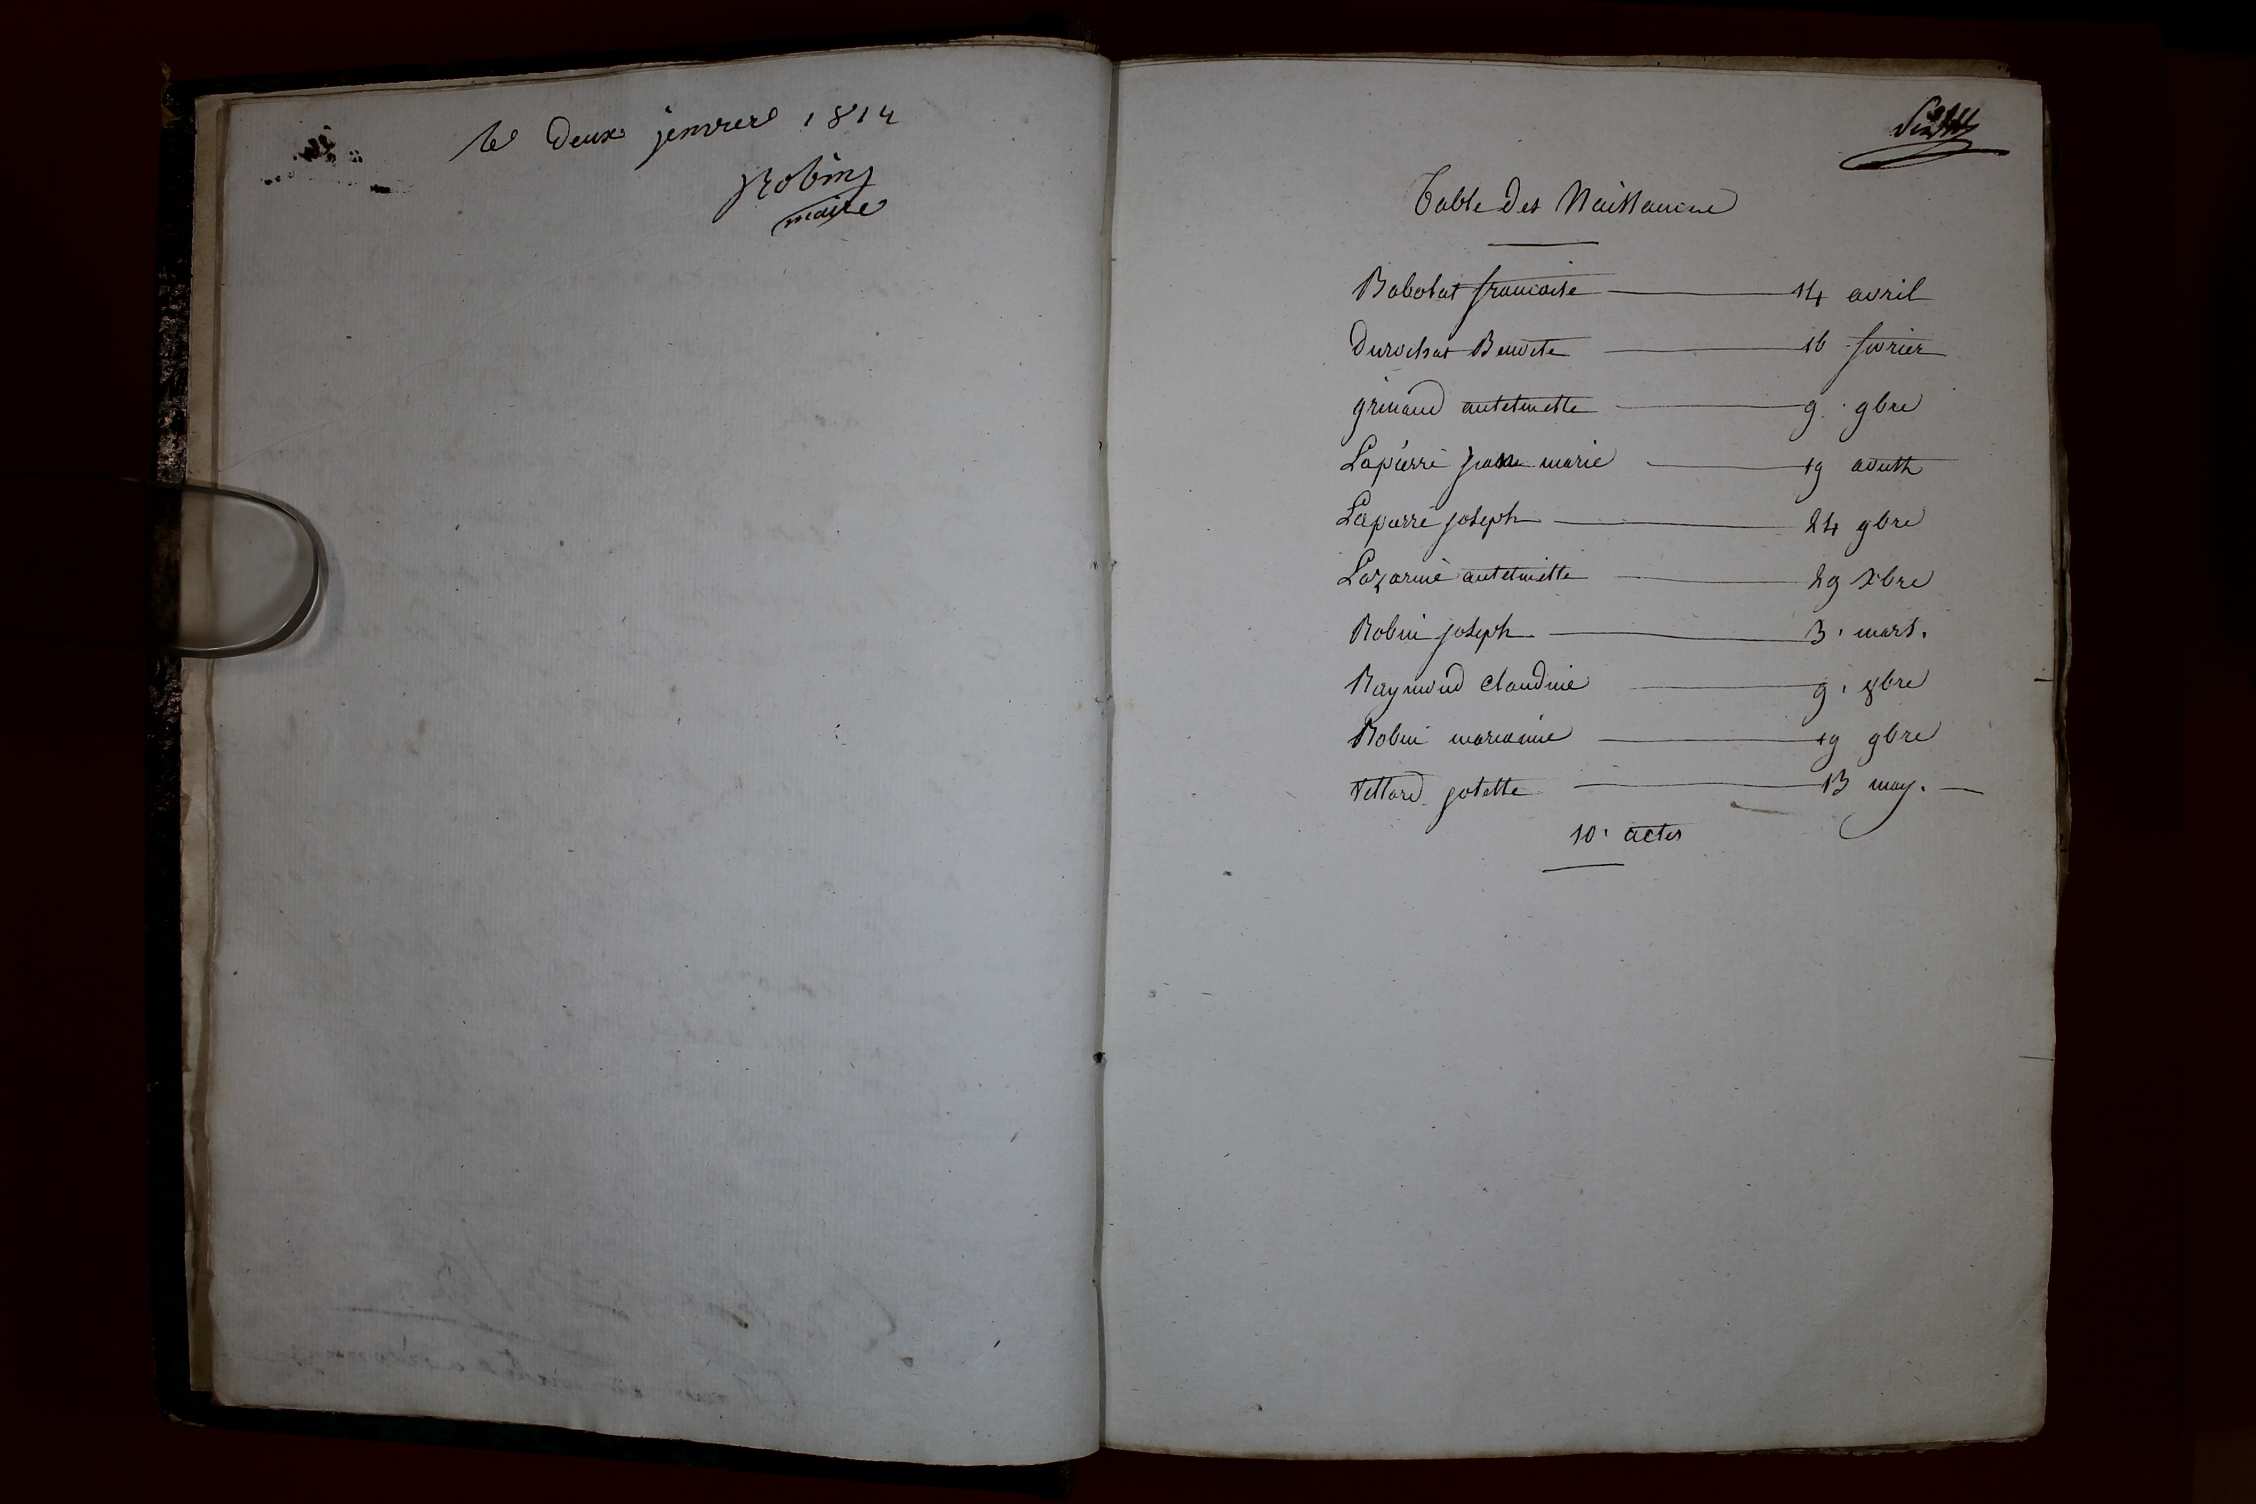 le Deux jenvier 1814
Robin
maire
Table Des Naissances
Babolat francoise 14 avril
Durochat Benoite 16 fevrier
grinand antelmette 9 9bre
Lapierre jeane marie 19 aoust
Lapierre joseph 24 9bre
Lazarine antelmette 29 Xbre
Robin joseph 3 mars.
Raymond Claudine 9 8bre
Robin marianne 19 9bre
Vettard josette 13 may.
10 actes